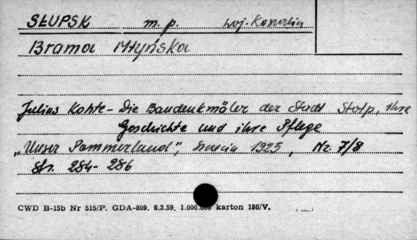 SŁUPSK m. p. woj. Koszalin
Brama Młyńska
Julius Kohte - Die Baudenkmäler der Stadt Stolp, ihre
Geschichte und ihre Pflege
„Unser Pommerland", 1925, Nr. 7/8
Str. 284-286
CWD B-15b Nr 515/P. GDA-809. 6.3.59. 1.000.000 karton 180/V.